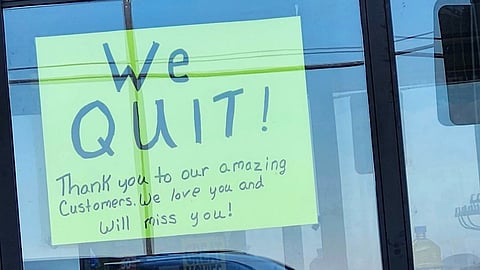 We
QUIT!
Thank you to our amazing
Customers. We love you and
will miss you!